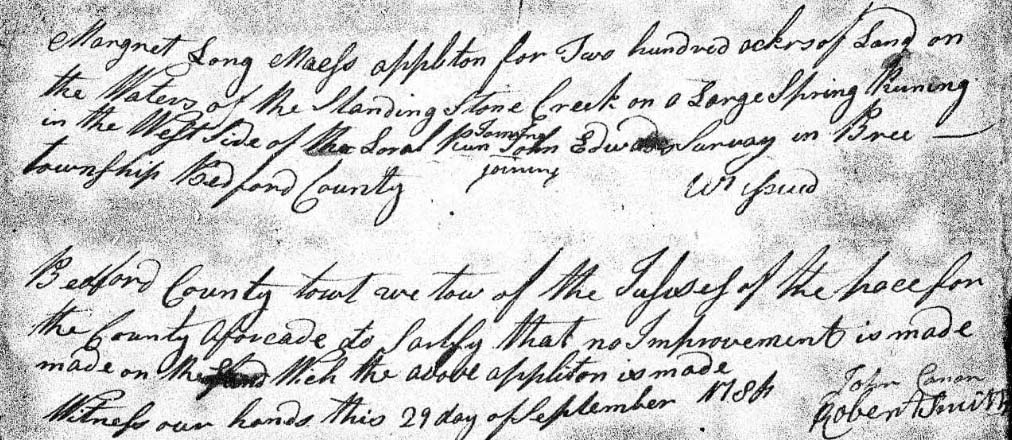 Margnet Long Maeks appliton for Two hundred ackrs of Land on
the Waters of the Standing Stone Creek on a Large Spring Runing
in the West Side of the Loral Run Joining John Edwards Survay in Bree
joining
township Bedford County Wt issued
Bedford County towt we tow of the Jusises of the pace for
the County aforcade do Sartfy that no Improvement is made
made on the Land Wich the above appliton is made
Witness our hands this 29 day of September 1784
John Canan
Robert Smith